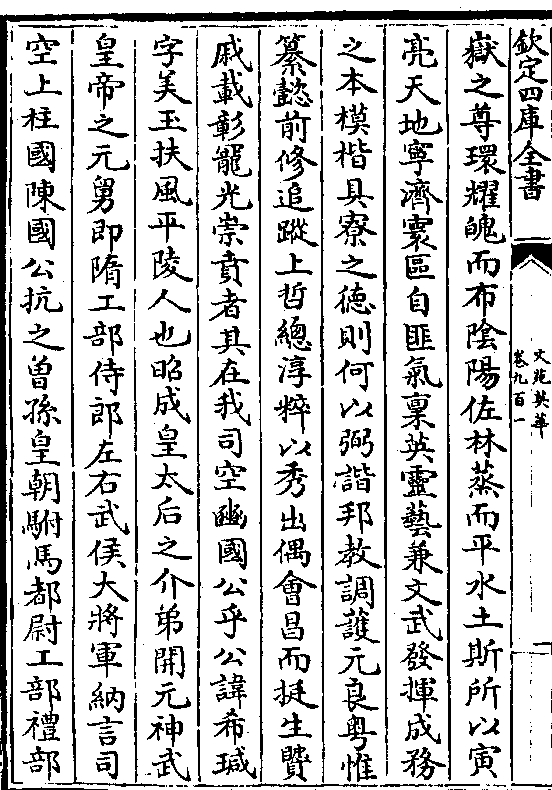 欽定四庫全書
文苑英華
卷九百一
一
嶽之尊環耀魄而布陰陽佐林蒸而平水土斯所以寅
亮天地寧濟寰區自匪氣稟英靈藝兼文武發揮成務
之本模楷具寮之徳則何以弼諧邦教調護元良粤惟
纂懿前修追蹤上哲總淳粹以秀出偶會昌而挺生贊
戚載彰寵光崇賁者其在我司空豳國公乎公諱希瑊
字美玉扶風平陵人也昭成皇太后之介弟開元神武
皇帝之元舅即隋工部侍郎左右武侯大將軍納言司
空上柱國陳國公抗之曾孫皇朝駙馬都尉工部禮部